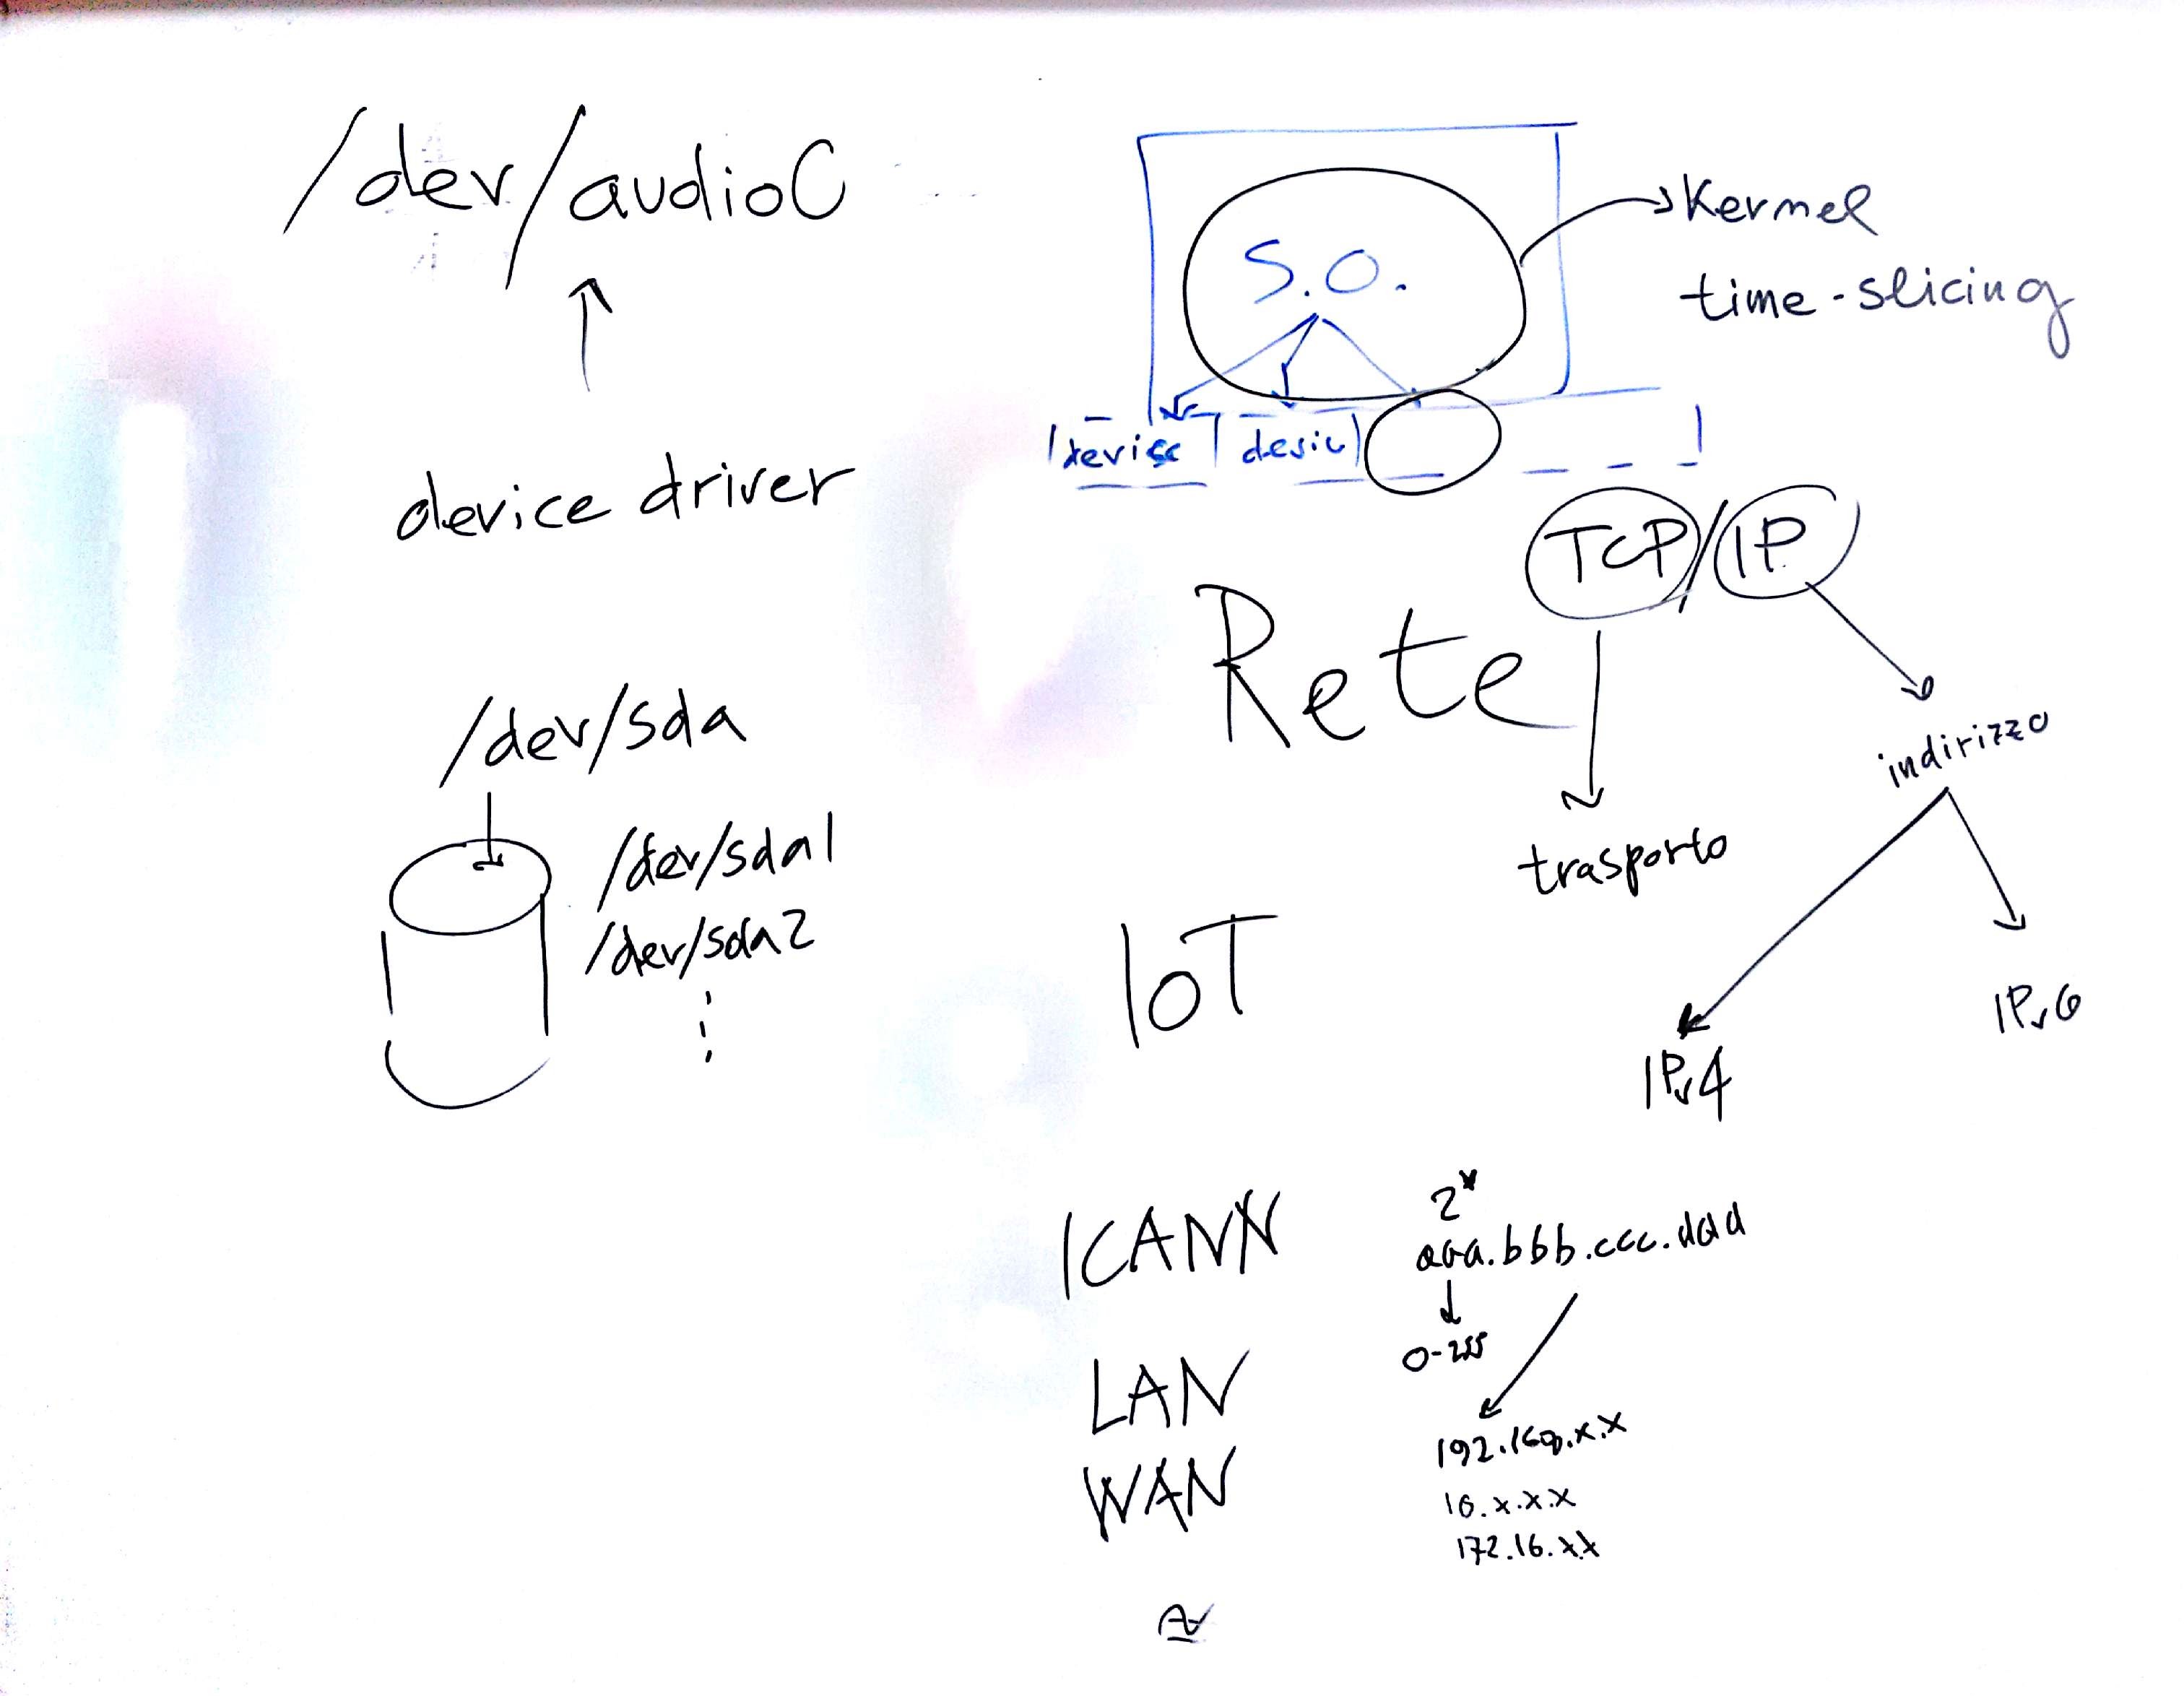 /dev/audio0
device driver
/dev/sda
/dev/sda1
/dev/sda2
S.O.
Kernel
time-slicing
device
TCP/IP
Rete
trasporto
indirizzo
IPv4
IPv6
IoT
ICANN
LAN
WAN
2^x
aaa.bbb.ccc.ddd
0-255
192.168.x.x
10.x.x.x
172.16.x.x